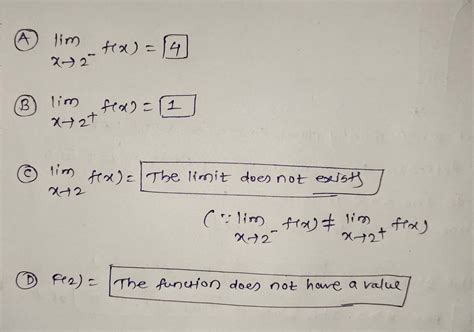 Ⓐ lim f(x) = 4
x→2⁻
Ⓑ lim f(x) = 1
x→2⁺
Ⓒ lim f(x) = The limit does not exists
x→2
(∵ lim f(x) ≠ lim f(x)
x→2⁻ x→2⁺
Ⓓ f(2) = The function does not have a value